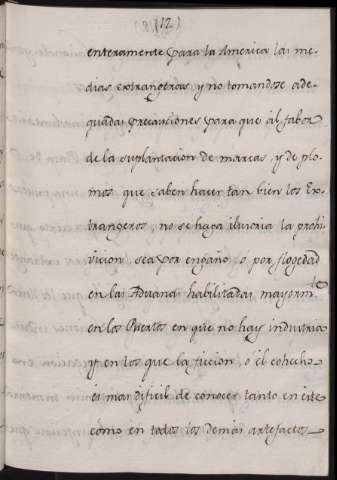 (12)
enteramente para la America las me-
dias extrangeras y no tomandose ade-
quadas precausiones para que al fabor
de la suplantacion de marcas, y de plo-
mos que saben hacer tan bien los Ex-
trangeros, no se haga ilusoria la prohi-
vicion sea por engaño, ó por flogedad
en las Aduanas habilitadas mayormte
en los Puertos en que no hay industria
y en los que la ficcion, ó el cohecho
es mas dificil de conocer tanto en este
como en todos los demas artefactos